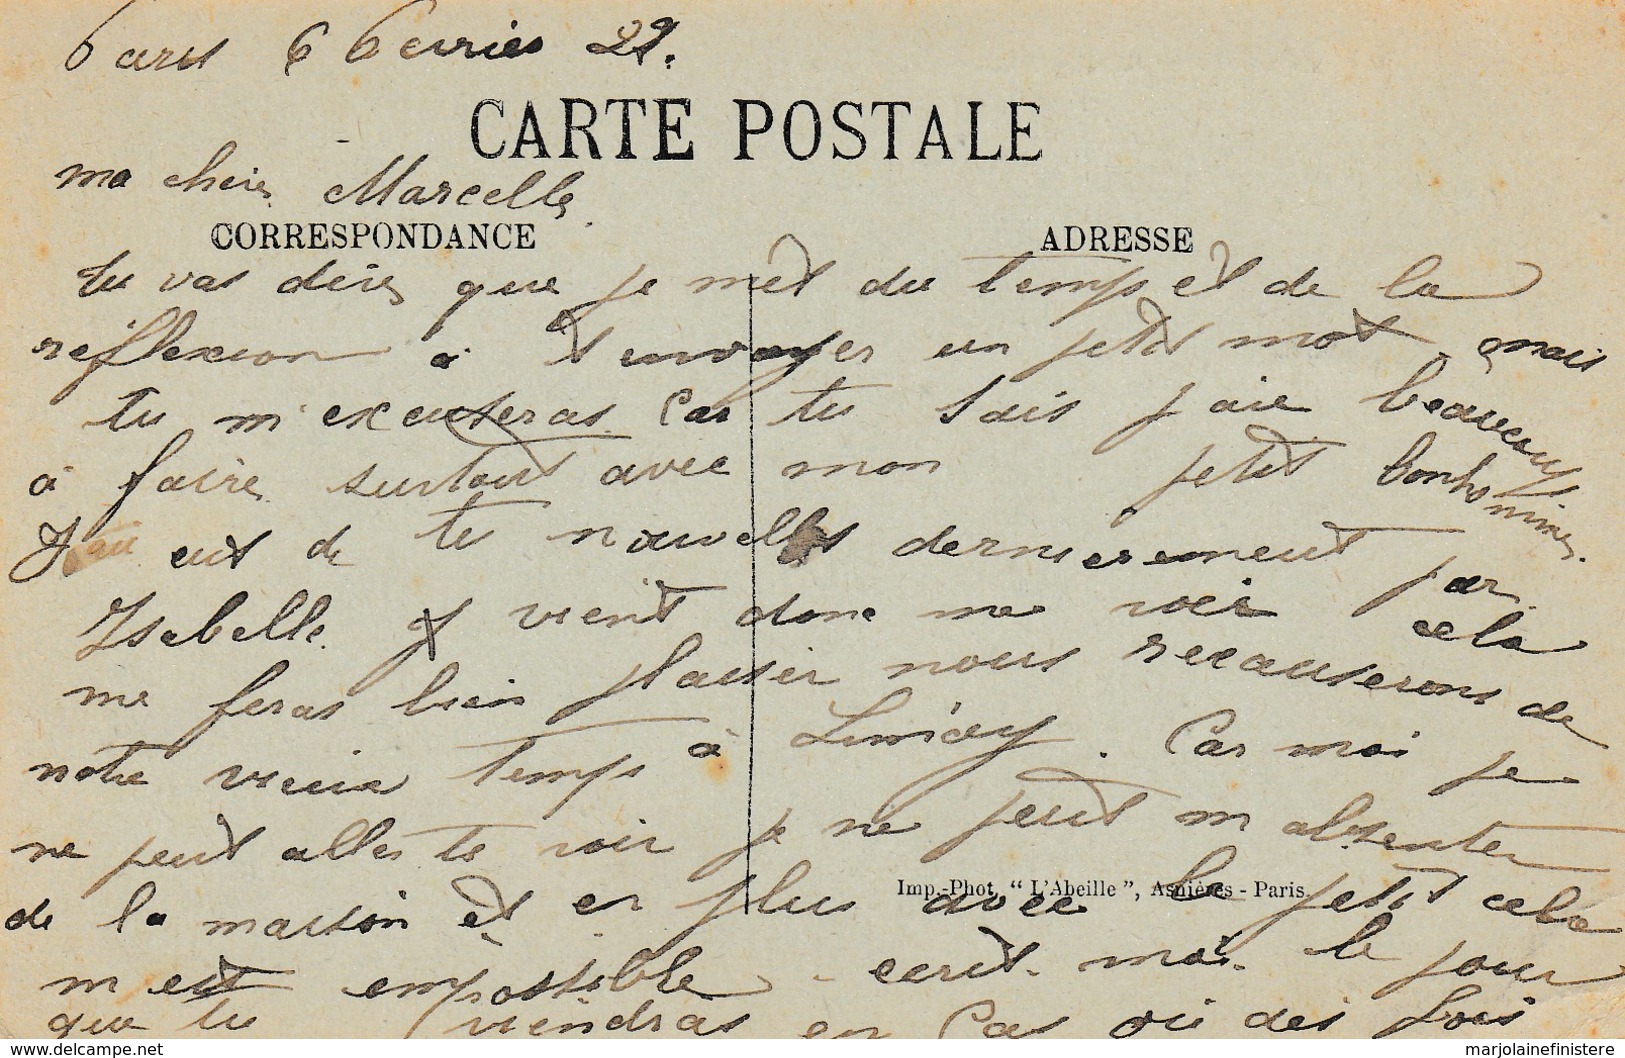 Paris 6 Fevrier 29.
CARTE POSTALE
ma chere Marcelle
CORRESPONDANCE ADRESSE
tu vas dire que je met du temps et de la
réflexion a t envoyer un petit mot, mais
tu m'excuseras Car tu sais j aie beaucoup
a faire surtout avec mon petit bonhomme.
J'ai eut de tes nouvelles dernierement par
Isabelle. vient donc me voir cela
me feras bien plaisir nous recauserons de
notre vieux temps à Limay. Car moi je
ne peut aller te voir je ne peut m absenter
de la maison et en plus avec le petit cela
Imp.-Phot. “ L'Abeille ”, Asnières - Paris.
m est impossible - ecrit-moi le jour
que tu viendras en Cas où des fois
www.delcampe.net marjolainefinistere